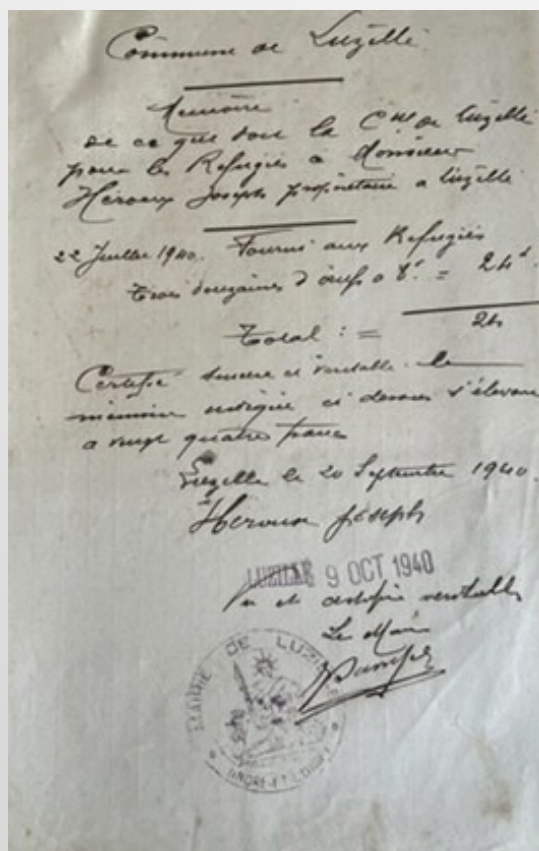 Commune de Luzillé
Mémoire
de ce que doit la Cne de Luzillé
pour les Refugiés à Monsieur
Heroux Joseph propriétaire a Luzillé
22 Juillet 1940. Fourni aux Refugiés
trois douzaines d'œufs a 8f = 24f
Total : = 24
Certifié sincère et véritable le
mémoire indiqué ci dessus s'élevant
a vingt quatre francs
Luzillé le 20 Septembre 1940.
Heroux Joseph
LUZILLÉ 9 OCT 1940
Vu et certifié véritable
Le Maire
MAIRIE DE LUZILLÉ
INDRE-ET-LOIRE